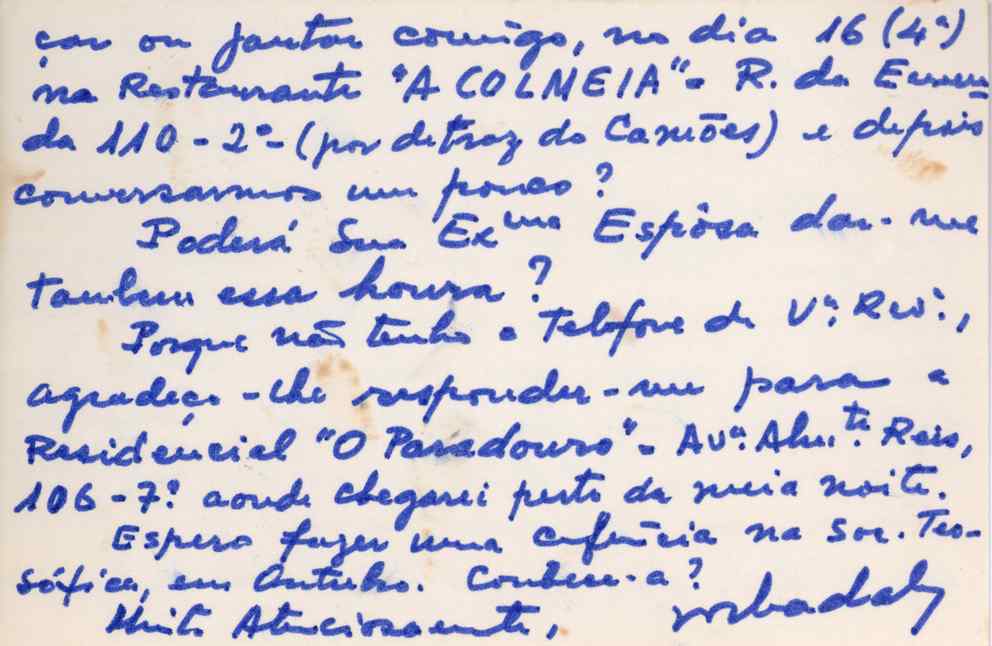 çar ou jantar comigo, no dia 16 (4ª)
na Restaurante "A COLMEIA" - R. da Emen
da 110 - 2º - (por detraz do Camões) e depois
conversarmos um pouco?
Poderá Sua Exma Espôsa dar-me
tambem essa honra?
Porque não tenho o Telefone de Vª. Revª.,
agradeço-lhe responder-me para a
Residencial "O Paradouro" - Avª. Almte. Reis,
106 - 7º. aonde chegarei perto da meia noite.
Espero fazer uma conferência na Soc. Teo-
sófica, em Outubro. Conhece-a?
Muito Atenciosamente,